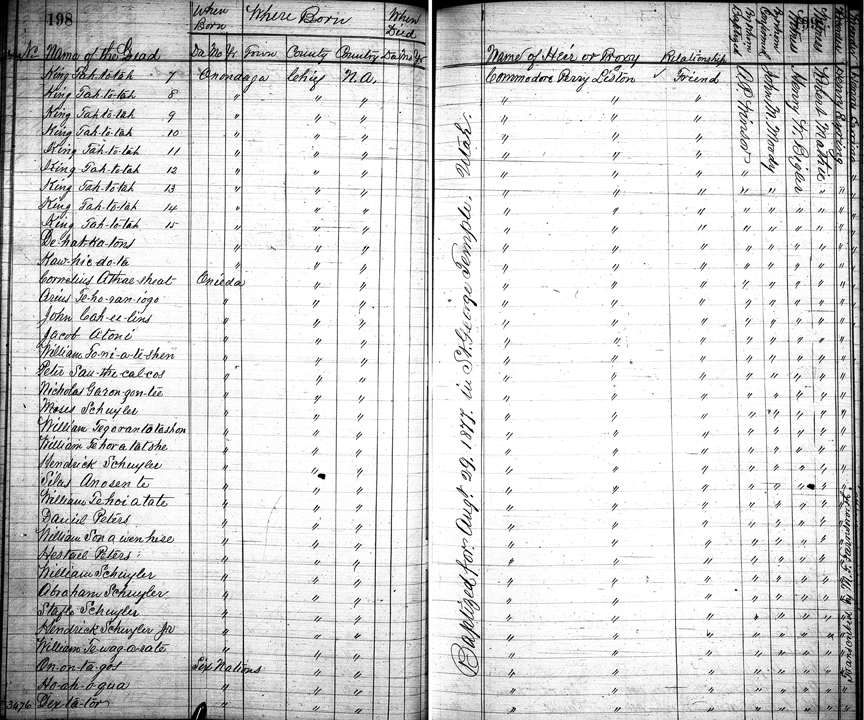 198
When Born
Where Born
When Died
No. Name of the Dead Da Mo Yr Town County Country Da Mo Yr
Name of Heir or Proxy Relationship
King Tah-to-tah 7 Onondaga Chief N.A. Commodore Perry Liston Friend
King Tah-to-tah 8 " " " " "
King Tah-to-tah 9 " " " " "
King Tah-to-tah 10 " " " " "
King Tah-to-tah 11 " " " " "
King Tah-to-tah 12 " " " " "
King Tah-to-tah 13 " " " " "
King Tah-to-tah 14 " " " " "
King Tah-to-tah 15 " " " " "
De-hat-ka-tons " " " " "
Kaw-hic-do-ta " " " " "
Cornelius Athrae-sheat Onieda " " " "
Arius Te-ho-ran-iogo " " " " "
John Cah-ee-lins " " " " "
Jacob Atoni " " " " "
William To-ni-a-te-shen " " " " "
Peter Sau-the-cal-cos " " " " "
Nicholas Garon-gon-tee " " " " "
Moses Schuyler " " " " "
William Tegorantotashon " " " " "
William Tehoratatshe " " " " "
Hendrick Schuyler " " " " "
Silas Anosente " " " " "
William Tehoiatate " " " " "
Daniel Peters " " " " "
William Sonawenhese " " " " "
Peters " " " " "
William Schuyler " " " " "
Abraham Schuyler " " " " "
Schuyler " " " " "
Hendrick Schuyler Jr " " " " "
William Te-wag-a-rate " " " " "
On-on-ta-gos Six Nations " " " "
Ho-ah-o-qua " " " " "
3476 Dex-ta-tor " " " " "
Baptized for Augt 29, 1877. in St. George Temple, Utah.
Baptized
By whom Confirmed John M. Moody
Witness Henry W. Bigler
Witness Robert
Transcribed by M. F. Farnsworth